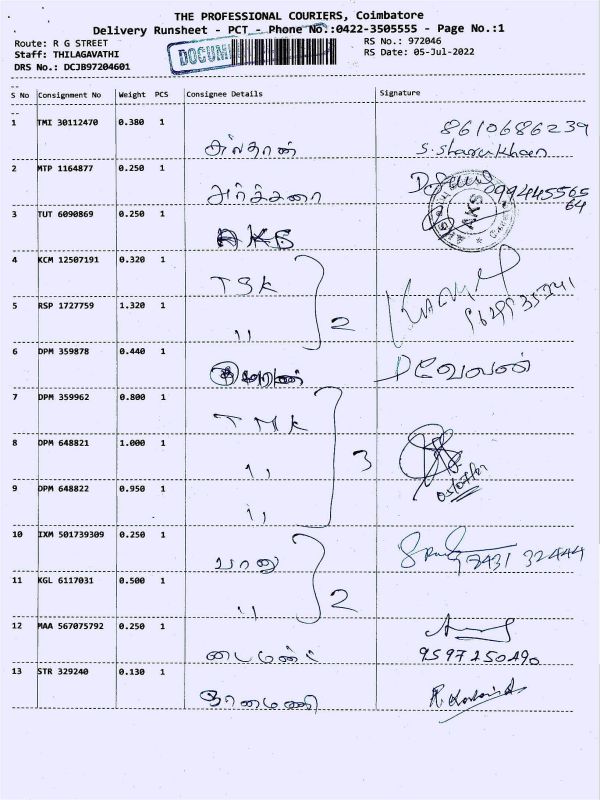 THE PROFESSIONAL COURIERS, Coimbatore
Delivery Runsheet - PCT - Phone No.:0422-3505555 - Page No.:1
Route: R G STREET
RS No.: 972046
Staff: THILAGAVATHI
DOCUM
RS Date: 05-Jul-2022
DRS No.: DCJB97204601
S No Consignment No Weight PCS Consignee Details Signature
1 TMI 30112470 0.380 1
8610686239
சுல்தான் S. Sharukhan
2 MTP 1164877 0.250 1
அர்ச்சனா
3 TUT 6090869 0.250 1
AKS
AKS
4 KCM 12507191 0.320 1
TSK
5 RSP 1727759 1.320 1
" 2
6 DPM 359878 0.440 1
D வேலன்
7 DPM 359962 0.800 1
TMK
8 DPM 648821 1.000 1
" 3
9 DPM 648822 0.950 1
"
10 IXM 501739309 0.250 1
பானு 7431 32444
11 KGL 6117031 0.500 1
" 2
12 MAA 567075792 0.250 1
9597250490
13 STR 329240 0.130 1